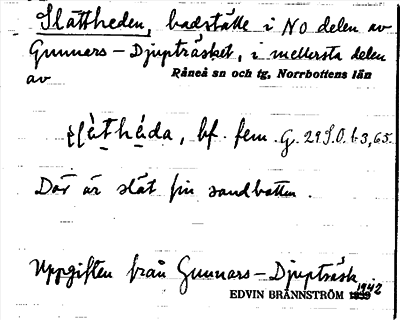 Slättheden, badställe i NO delen av
Gunnars-Djupträsket, i mellersta delen
av Råneå sn och tg, Norrbottens län
bf. fem. G. 29
Där är slät fin sandbotten.
Uppgiften från Gunnars-Djupträsk
EDVIN BRÄNNSTRÖM 1939 1942